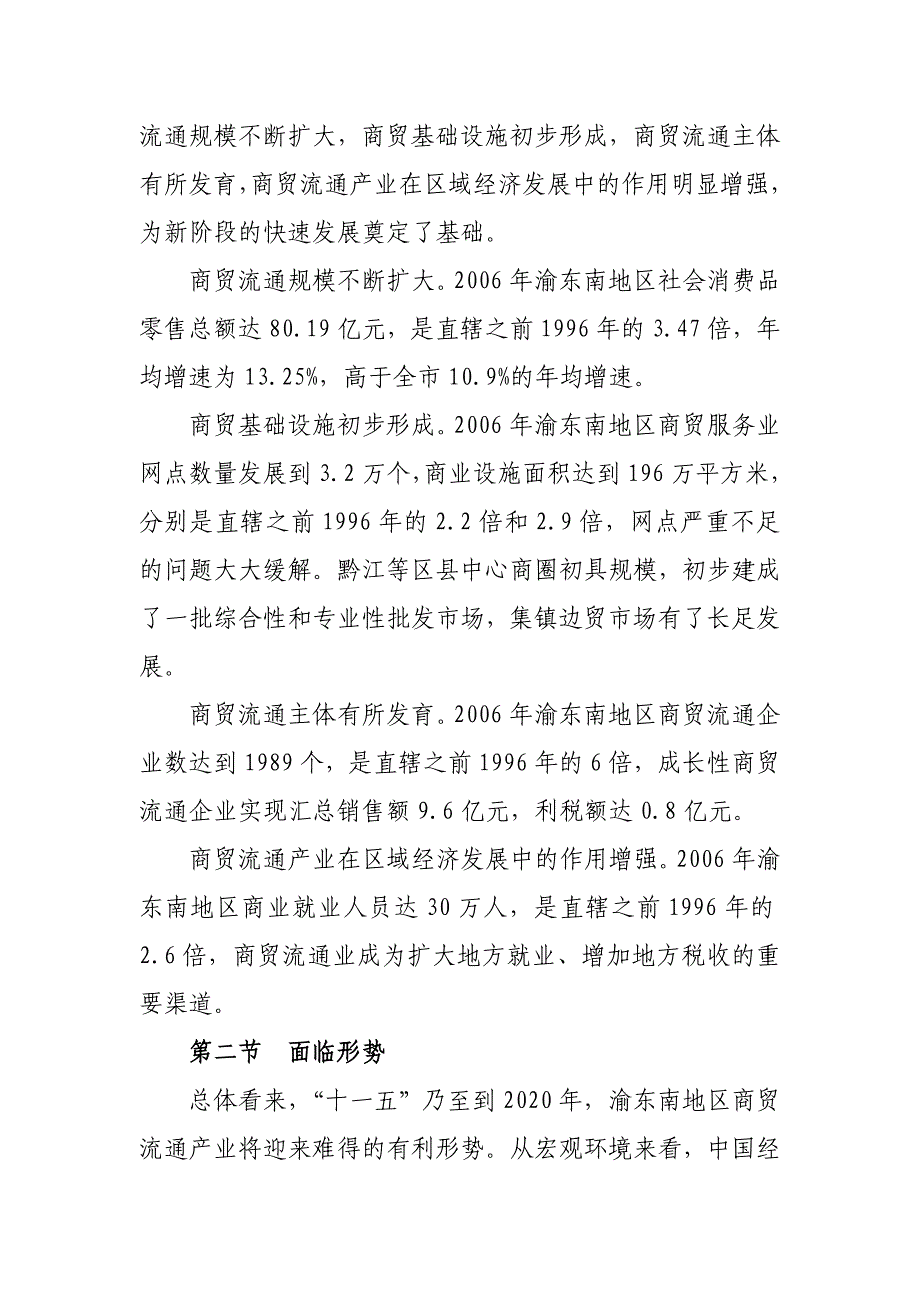 流通规模不断扩大，商贸基础设施初步形成，商贸流通主体
有所发育，商贸流通产业在区域经济发展中的作用明显增强，
为新阶段的快速发展奠定了基础。
商贸流通规模不断扩大。2006 年渝东南地区社会消费品
零售总额达 80.19 亿元，是直辖之前 1996 年的 3.47 倍，年
均增速为 13.25%，高于全市 10.9%的年均增速。
商贸基础设施初步形成。2006 年渝东南地区商贸服务业
网点数量发展到 3.2 万个，商业设施面积达到 196 万平方米，
分别是直辖之前 1996 年的 2.2 倍和 2.9 倍，网点严重不足
的问题大大缓解。黔江等区县中心商圈初具规模，初步建成
了一批综合性和专业性批发市场，集镇边贸市场有了长足发
展。
商贸流通主体有所发育。2006 年渝东南地区商贸流通企
业数达到 1989 个，是直辖之前 1996 年的 6 倍，成长性商贸
流通企业实现汇总销售额 9.6 亿元，利税额达 0.8 亿元。
商贸流通产业在区域经济发展中的作用增强。2006 年渝
东南地区商业就业人员达 30 万人，是直辖之前 1996 年的
2.6 倍，商贸流通业成为扩大地方就业、增加地方税收的重
要渠道。
第二节　面临形势
总体看来，“十一五”乃至到 2020 年，渝东南地区商贸
流通产业将迎来难得的有利形势。从宏观环境来看，中国经